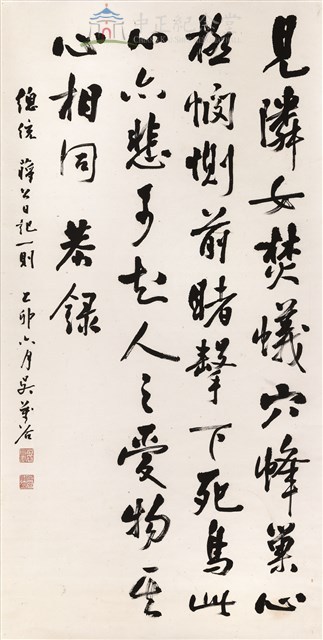 見隣女焚蟻穴蜂巢心
極憫惻前睹擊下死鳥此
心六悲可知人之愛物其
心相同 恭錄
總統 蔣公日記一則 乙卯六月吳萬谷
中正紀念堂